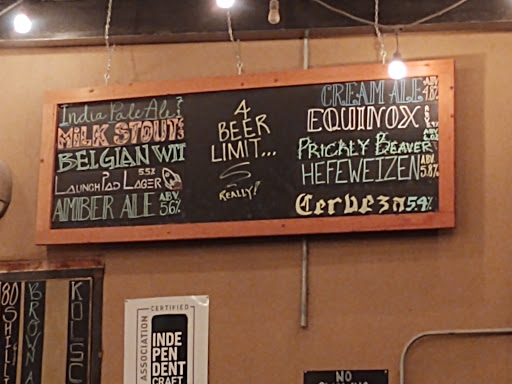 India Pale Ale
MILK STOUT
BELGIAN WIT
LAUNCHPAD LAGER 5.5%
AMBER ALE ABV 5.6%
4
BEER
LIMIT...
REALLY!
CREAM ALE ABV 4.8%
EQUINOX
PRICKLY BEAVER
HEFEWEIZEN ABV 5.8%
Cerveza 5.4%
80
SHILL
BROWN A
KOLSC
CERTIFIED
ASSOCIATION
INDE
PEN
DENT
CRAFT
NO